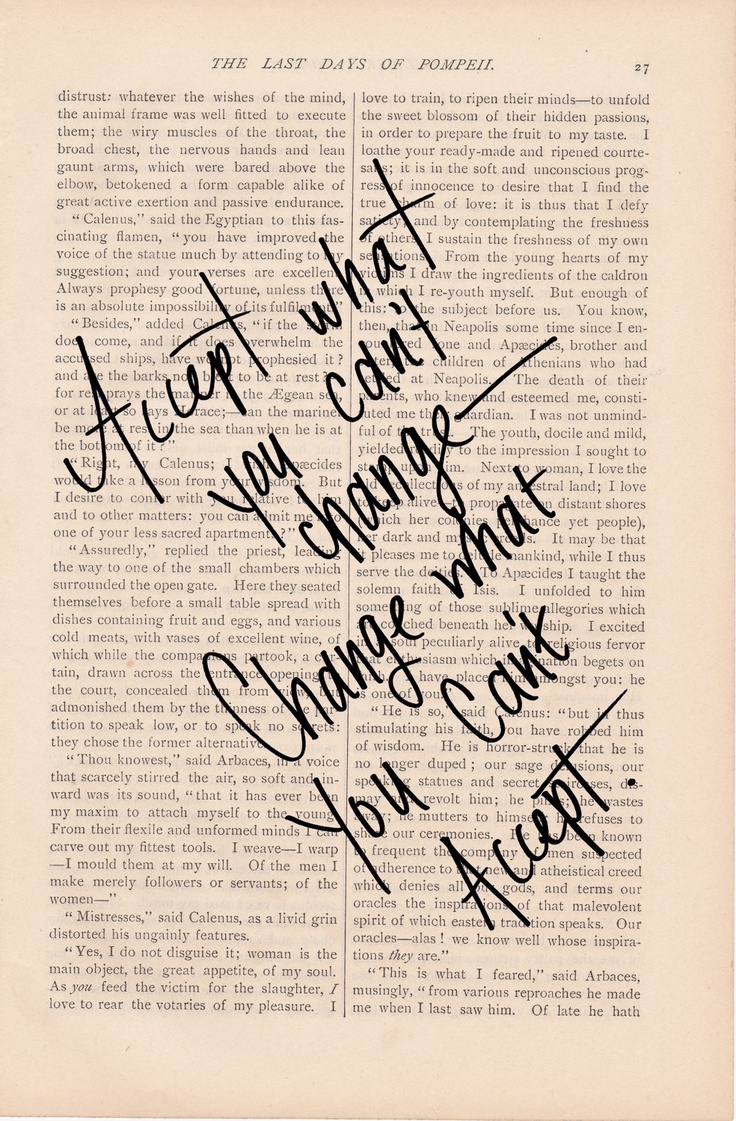 THE LAST DAYS OF POMPEII.
27
distrust: whatever the wishes of the mind,
the animal frame was well fitted to execute
them; the wiry muscles of the throat, the
broad chest, the nervous hands and lean
gaunt arms, which were bared above the
elbow, betokened a form capable alike of
great active exertion and passive endurance.
“Calenus,” said the Egyptian to this fas-
cinating flamen, “you have improved the
voice of the statue much by attending to
suggestion; and your verses are excellent.
Always prophesy good fortune, unless there
is an absolute impossibility of its fulfilment.”
“Besides,” added Calenus, “if the
does come, and if it does overwhelm the
accursed ships, have we not prophesied it?
and are the barks not to be at rest?
for rest prays the in the Ægean sea,
or at least so says Horace;—can the mariner
be more at rest in the sea than when he is at
the bottom of it?”
“Right, my Calenus; I Apæcides
would take a lesson from your wisdom. But
I desire to confer with you relative to
and to other matters: you can admit me into
one of your less sacred apartments?”
“Assuredly,” replied the priest, leading
the way to one of the small chambers which
surrounded the open gate. Here they seated
themselves before a small table spread with
dishes containing fruit and eggs, and various
cold meats, with vases of excellent wine, of
which while the companions partook, a cur-
tain, drawn across the entrance opening
the court, concealed them from view, but
admonished them by the thinness of the par-
tition to speak low, or to speak no secrets:
they chose the former alternative.
“Thou knowest,” said Arbaces, in a voice
that scarcely stirred the air, so soft and in-
ward was its sound, “that it has ever been
my maxim to attach myself to the young.
From their flexile and unformed minds I can
carve out my fittest tools. I weave—I warp
—I mould them at my will. Of the men I
make merely followers or servants; of the
women—”
“Mistresses,” said Calenus, as a livid grin
distorted his ungainly features.
“Yes, I do not disguise it; woman is the
main object, the great appetite, of my soul.
As you feed the victim for the slaughter, I
love to rear the votaries of my pleasure. I
love to train, to ripen their minds—to unfold
the sweet blossom of their hidden passions,
in order to prepare the fruit to my taste. I
loathe your ready-made and ripened courte-
sans; it is in the soft and unconscious prog-
ress of innocence to desire that I find the
true charm of love: it is thus that I defy
satiety; and by contemplating the freshness
of others, I sustain the freshness of my own
sensations. From the young hearts of my
victims I draw the ingredients of the caldron
in which I re-youth myself. But enough of
this: the subject before us. You know,
then, that in Neapolis some time since I en-
countered Ione and Apæcides, brother and
sister, children of Athenians who had
settled at Neapolis. The death of their
parents, who knew and esteemed me, consti-
tuted me their guardian. I was not unmind-
ful of the trust. The youth, docile and mild,
yielded readily to the impression I sought to
stamp upon him. Next to woman, I love the
old recollections of my ancestral land; I love
to keep alive—to propagate on distant shores
which her colonies perchance yet people),
her dark and mystic creeds. It may be that
it pleases me to delude mankind, while I thus
serve the deities. To Apæcides I taught the
solemn faith of Isis. I unfolded to him
something of those sublime allegories which
are couched beneath her worship. I excited
in a soul peculiarly alive to religious fervor
that enthusiasm which imagination begets on
faith. I have placed him amongst you: he
is one of you.”
“He is so,” said Calenus: “but in thus
stimulating his faith, you have robbed him
of wisdom. He is horror-struck that he is
no longer duped; our sage delusions, our
speaking statues and secret staircases, dis-
may and revolt him; he pines; he wastes
away; he mutters to himself; he refuses to
share our ceremonies. He has been known
to frequent the company of men suspected
of adherence to that new and atheistical creed
which denies all our gods, and terms our
oracles the inspirations of that malevolent
spirit of which eastern tradition speaks. Our
oracles—alas! we know well whose inspira-
tions they are.”
“This is what I feared,” said Arbaces,
musingly, “from various reproaches he made
me when I last saw him. Of late he hath
Accept what
you can't
change—
Change what
You Can't
Accept.